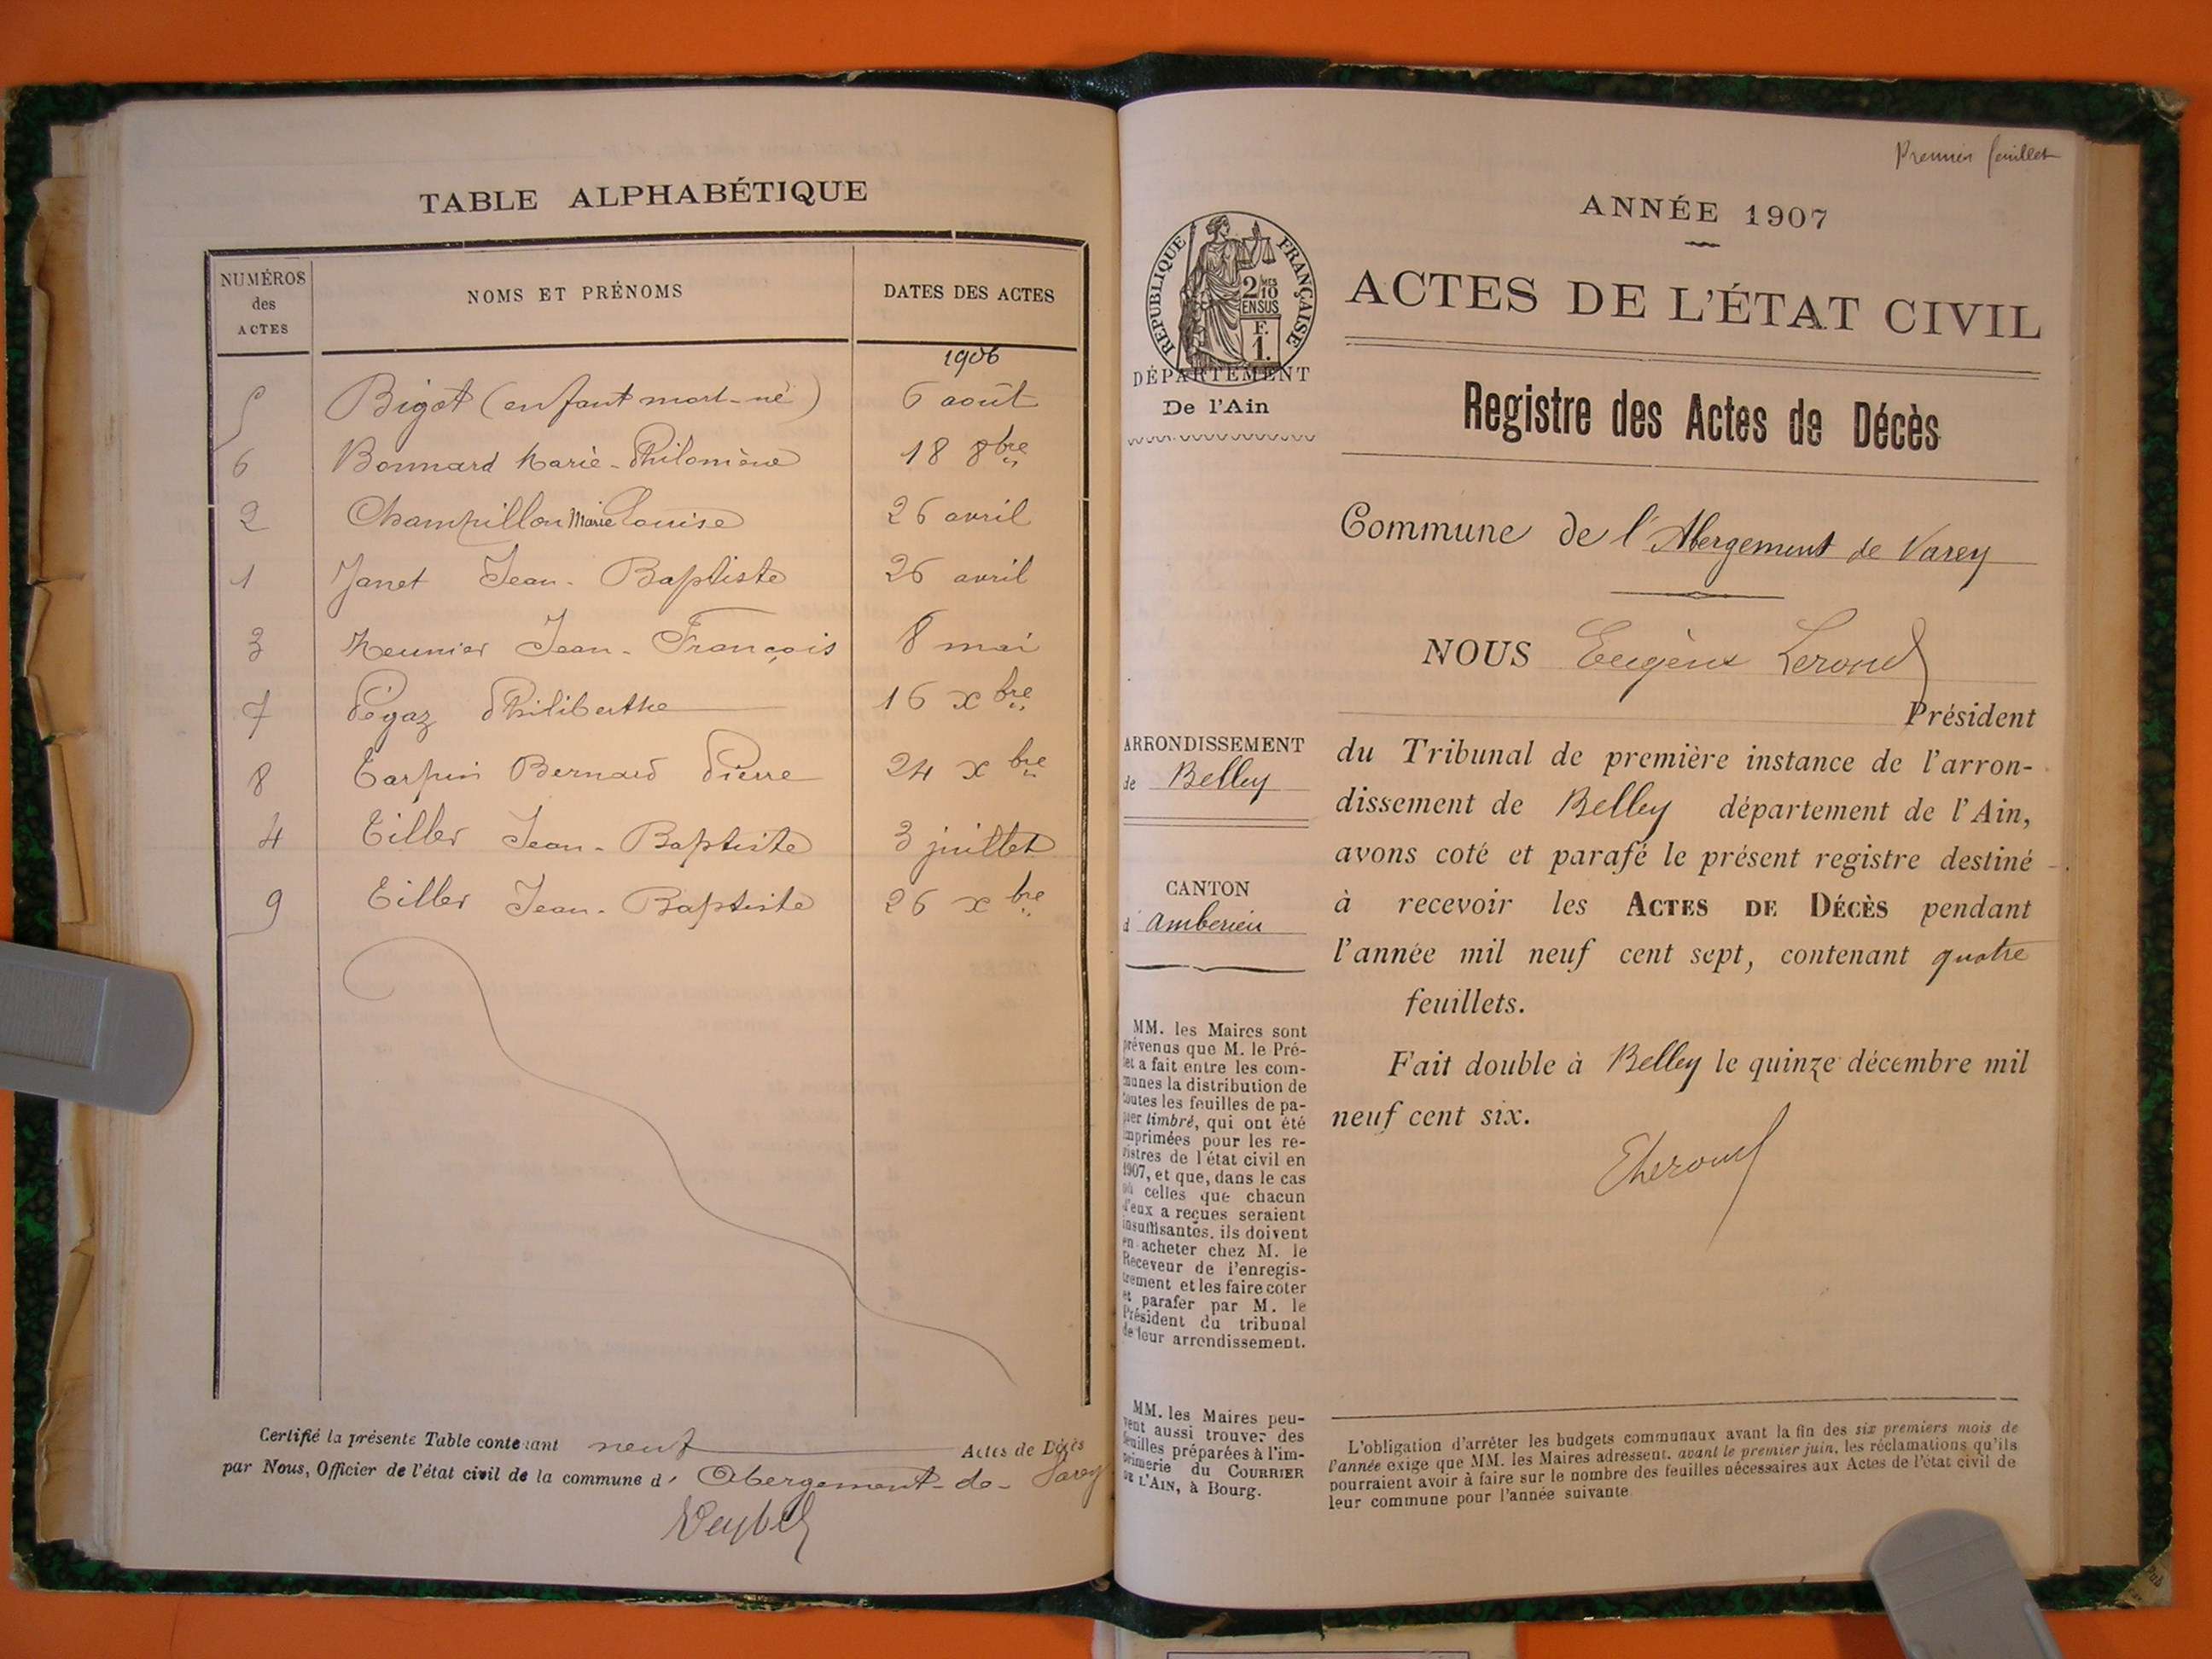 TABLE ALPHABÉTIQUE
NUMÉROS des ACTES
NOMS ET PRÉNOMS
DATES DES ACTES
1906
5 Bigot (enfant mort-né) 6 août
6 Bonnard Marie-Philomène 18 8bre
2 Champillon Marie Louise 26 avril
1 Janet Jean-Baptiste 26 avril
3 Meunier Jean-François 8 mai
7 Pégaz Philiberthe 16 xbre
8 Tarpin Bernard Pierre 24 xbre
4 Tiller Jean-Baptiste 3 juillet
9 Tiller Jean-Baptiste 26 xbre
Certifié la présente Table contenant neuf Actes de Décès
par Nous, Officier de l'état civil de la commune d' Abergement-de-Varey
Premier feuillet
ANNÉE 1907
RÉPUBLIQUE FRANÇAISE
2/10 MES
EN SUS
F.
1.
DÉPARTEMENT
De l'Ain
ACTES DE L'ÉTAT CIVIL
Registre des Actes de Décès
Commune de l'Abergement de Varey
NOUS Eugène Lerond
Président
du Tribunal de première instance de l'arron-
dissement de Belley département de l'Ain,
avons coté et parafé le présent registre destiné
à recevoir les ACTES DE DÉCÈS pendant
l'année mil neuf cent sept, contenant quatre
feuillets.
Fait double à Belley le quinze décembre mil
neuf cent six.
ARRONDISSEMENT
de Belley
CANTON
d'Amberieu
MM. les Maires sont
prévenus que M. le Pré-
fet a fait entre les com-
munes la distribution de
toutes les feuilles de pa-
pier timbré, qui ont été
imprimées pour les re-
gistres de l'état civil en
1907, et que, dans le cas
où celles que chacun
d'eux a reçues seraient
insuffisantes, ils doivent
en acheter chez M. le
Receveur de l'enregis-
trement et les faire coter
et parafer par M. le
Président du tribunal
de leur arrondissement.
MM. les Maires peu-
vent aussi trouver des
feuilles préparées à l'im-
primerie du COURRIER
DE L'AIN, à Bourg.
L'obligation d'arrêter les budgets communaux avant la fin des six premiers mois de
l'année exige que MM. les Maires adressent, avant le premier juin, les réclamations qu'ils
pourraient avoir à faire sur le nombre des feuilles nécessaires aux Actes de l'état civil de
leur commune pour l'année suivante